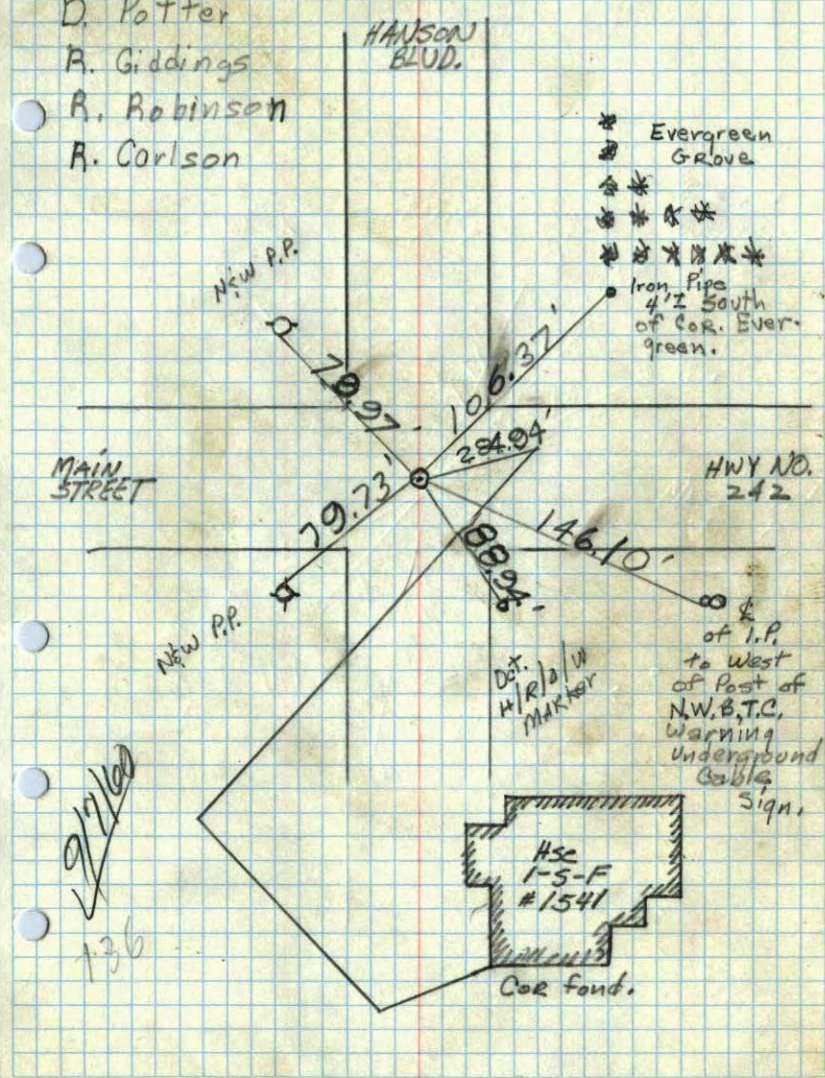 D. Potter
R. Giddings
R. Robinson
R. Carlson
HANSON
BLVD.
Evergreen
GROVE
N&W P.P.
Iron Pipe
4'± South
of COR. Ever-
green.
78.97'
106.37'
284.94'
MAIN
STREET
HWY NO.
242
79.73'
146.10'
88.94'
N&W P.P.
Det.
H/R/O/W
MARKER
℄
of I.P.
to West
of Post of
N.W.B.T.C.
Warning
Underground
Cable
Sign.
9/7/60
136
Hse
1-S-F
#1541
COR fond.